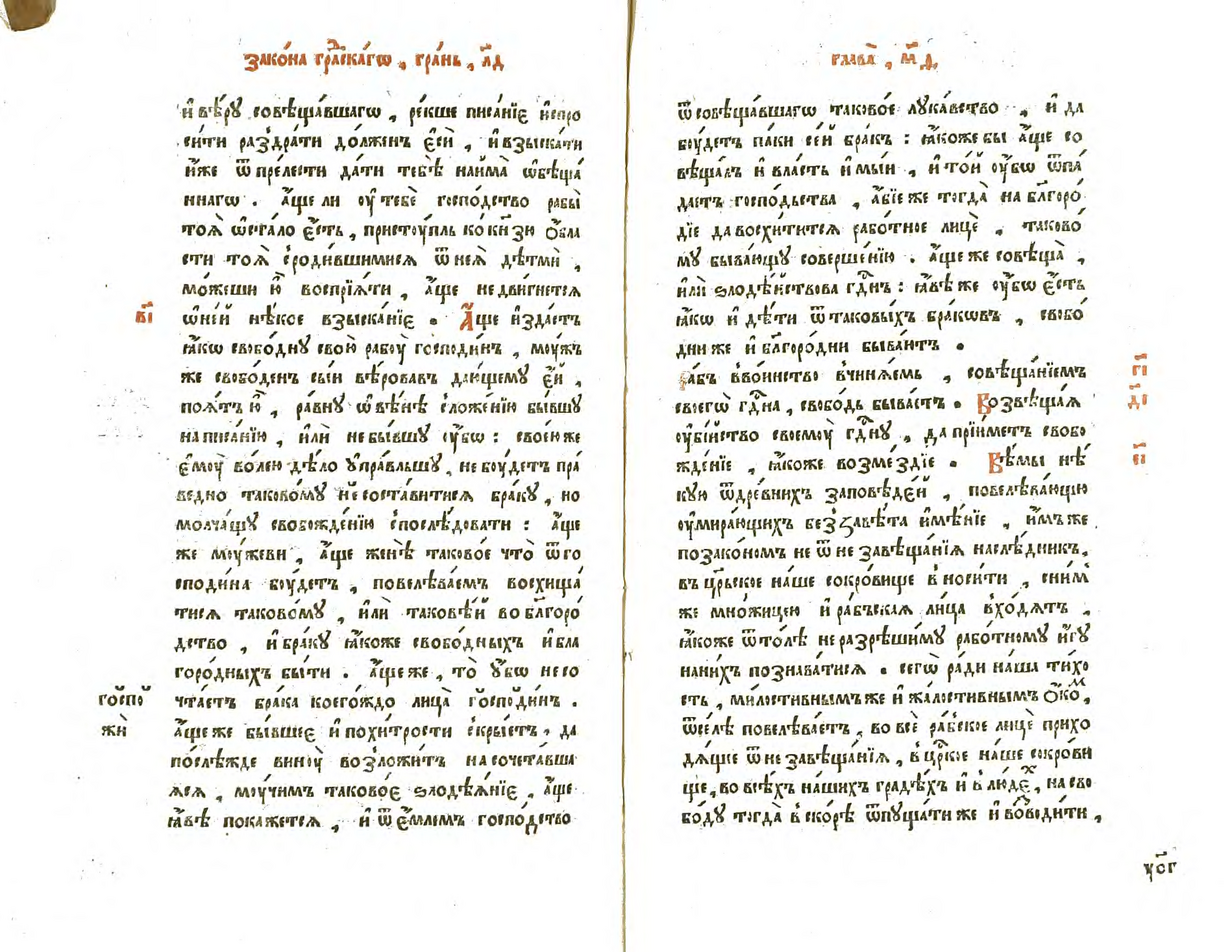 Зако́на гра́дскагѡ, гра́нь, л҃д
и҆ вѣ́рꙋ совѣща́вшагѡ, ре́кше писа́нїє и҆спро
си́ти раздра́ти до́лженъ є҆сѝ, и҆ взыска́ти
и҆́же ѿ пре́лести да́ти тебѣ̀ наи́ма ѡ҆бѣща́
ннагѡ. а҆́ще ли ᲂу҆ тебє̀ госпо́дство рабы̀
тоѧ̀ ѡ҆ста́ло є҆́сть, пристꙋ́пль ко кнѧ́зю ѻ҆́бла
сти тоѧ̀ с̾роди́вшимисѧ ѿ неѧ̀ дѣтмѝ,
мо́жеши ю҆̀ воспрїѧ́ти, а҆́ще не дви́гнетсѧ
в҃і
ѡ҆ не́й нѣ́кое взыска́нїє. А҆́ще и҆зда́стъ
ꙗ҆́кѡ свобо́днꙋ свою̀ рабꙋ̀ господи́нъ, мꙋ́жъ
же свобо́денъ сы́и вѣ́ровавъ даю́щемꙋ є҆́й,
поѧ́тъ ю҆̀, ра́внꙋ ѡ҆ вѣ́нѣ сложе́нїю бы́вшꙋ
написа́нїю, и҆лѝ не бы́вшꙋ ᲂу҆́бѡ: свое́ю же
є҆мꙋ̀ во́лею дѣ́ло ᲂу҆пра́вльшꙋ, не бꙋ́детъ пра́
ведно таково́мꙋ не соста́витисѧ бра́кꙋ, но
молча́щꙋ свобожде́нїю с̾послѣ́довати: а҆́ще
же мꙋ́жеви, а҆́ще женѣ̀ таково́е что̀ ѿ го
споди́на бꙋ́детъ, повелѣва́емъ восхища́
тисѧ таково́мꙋ, и҆лѝ таковѣ́й во бл҃горо́
дство, и҆ бра́кꙋ ꙗ҆́коже свобо́дныхъ и҆ бла
горо́дныхъ бы́ти. а҆́ще же, то̀ ᲂу҆́бѡ не со
госпо
жѝ
чта́етъ бра́ка коего́ждо лица̀ господи́нъ.
а҆́ще же бы́вшеє и҆ по хи́трости скры́етъ, да
по́слѣжде винꙋ̀ возложи́тъ на сочета́вша
ѧсѧ, мꙋ́чимъ таково́є ѕлодѣѧ́нїє, а҆́ще
ꙗ҆́вѣ пока́жетсѧ, и҆ ѿе́млемъ госпо́дство
глава̀, м҃д
ѿ совѣща́вшагѡ таково́е лꙋка́вство, и҆ да
бꙋ́детъ па́ки се́й бра́къ: ꙗ҆́коже бы а҆́ще со
вѣща́лъ и҆ вла́сть и҆мы́и, и҆ то́й ᲂу҆́бѡ ѿпа́
даетъ госпо́дьства, а҆́бїє же тогда̀ на бл҃горо́
дїє да восхи́титсѧ рабо́тное лицѐ, таково́
мꙋ быва́ющꙋ соверше́нїю. а҆́ще же совѣща̀,
и҆лѝ ѕлодѣ́йствова гд҃нъ: ꙗ҆́вѣ же ᲂу҆́бѡ є҆́сть
ꙗ҆́кѡ и҆ дѣ́ти ѿ таковы́хъ бра́кѡвъ, свобо́
дни же и҆ бл҃горо́дни быва́ютъ.
г҃і
ра́бъ в̾ во́инство в̾чинѧ́емь, совѣща́нїемъ
д҃і
своегѡ̀ гд҃на, свобо́дь быва́етъ. Возвѣща́ѧ
ᲂу҆бі́йство своемꙋ̀ гд҃нꙋ, да прїи́метъ свобо
е҃і
жде́нїе, ꙗ҆́коже возме́здїе. Вѣ́мы нѣ́
кꙋю ѿ дре́внихъ за́повѣде́й, повелѣва́ющꙋю
ᲂу҆мира́ющихъ без̾ завѣ́та и҆мѣ́нїе, и҆́мъ же
по зако́номъ не ѿ не завѣща́нїѧ наслѣ́дникъ,
въ цр҃ьское на́ше сокро́вище в̾носи́ти, с̾ни́м
же мно́жицею и҆ ра́бъскаѧ ли́ца в̾хо́дѧтъ,
ꙗ҆́коже ѿто́лѣ не разрѣши́мꙋ рабо́тномꙋ и҆́гꙋ
на ни́хъ познава́тисѧ. сегѡ̀ ра́ди на́ша ти́хо
сть, ми́лостивнымъ же и҆ жа́лостивнымъ ѻ҆́комъ,
ѿсе́лѣ повелѣва́етъ, во всѐ ра́бское лицѐ прихо
дѧ́щее ѿ не завѣща́нїѧ, в̾ цр҃кое на́ше сокро́ви
ще, во всѣ́хъ на́шихъ градѣ́хъ и҆ в̾ лю́дехъ, на сво
бо́дꙋ тогда̀ в̾ско́рѣ ѿпꙋща́ти же и҆ во́вѡдити,
ѵ҃ѻг